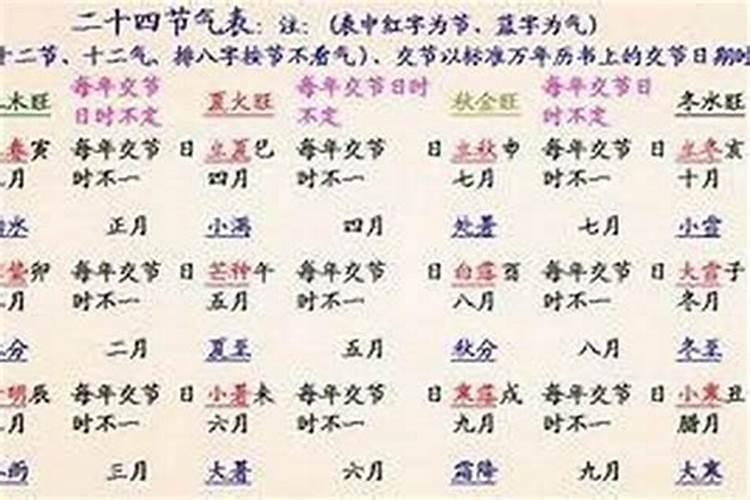 二十四节气表：注：(表中红字为节、蓝字为气)
十二节、十二气。排八字按节不看气)、交节以标准万年历书上的交节日期时
木旺 每年交节 夏火旺 每年交节日时 秋金旺 每年交节日 冬水旺
日时不定 不定 时不定
春寅 每年交节 日 立夏巳 每年交节 日 立秋申 每年交节 日 立冬亥
月 时不一 四月 时不一 七月 时不一 十月
水 正月 小满 四月 处暑 七月 小雪
蛰卯 每年交节 日 芒种午 每年交节 日 白露酉 每年交节 日 大雪子
月 时不一 五月 时不一 八月 时不一 冬月
分 二月 夏至 五月 秋分 八月 冬至
明辰 每年交节 日 小暑未 每年交节 日 寒露戌 每年交节 日 小寒丑
月 时不一 六月 时不一 九月 时不一 腊月
雨 三月 大暑 六月 霜降 九月 大寒